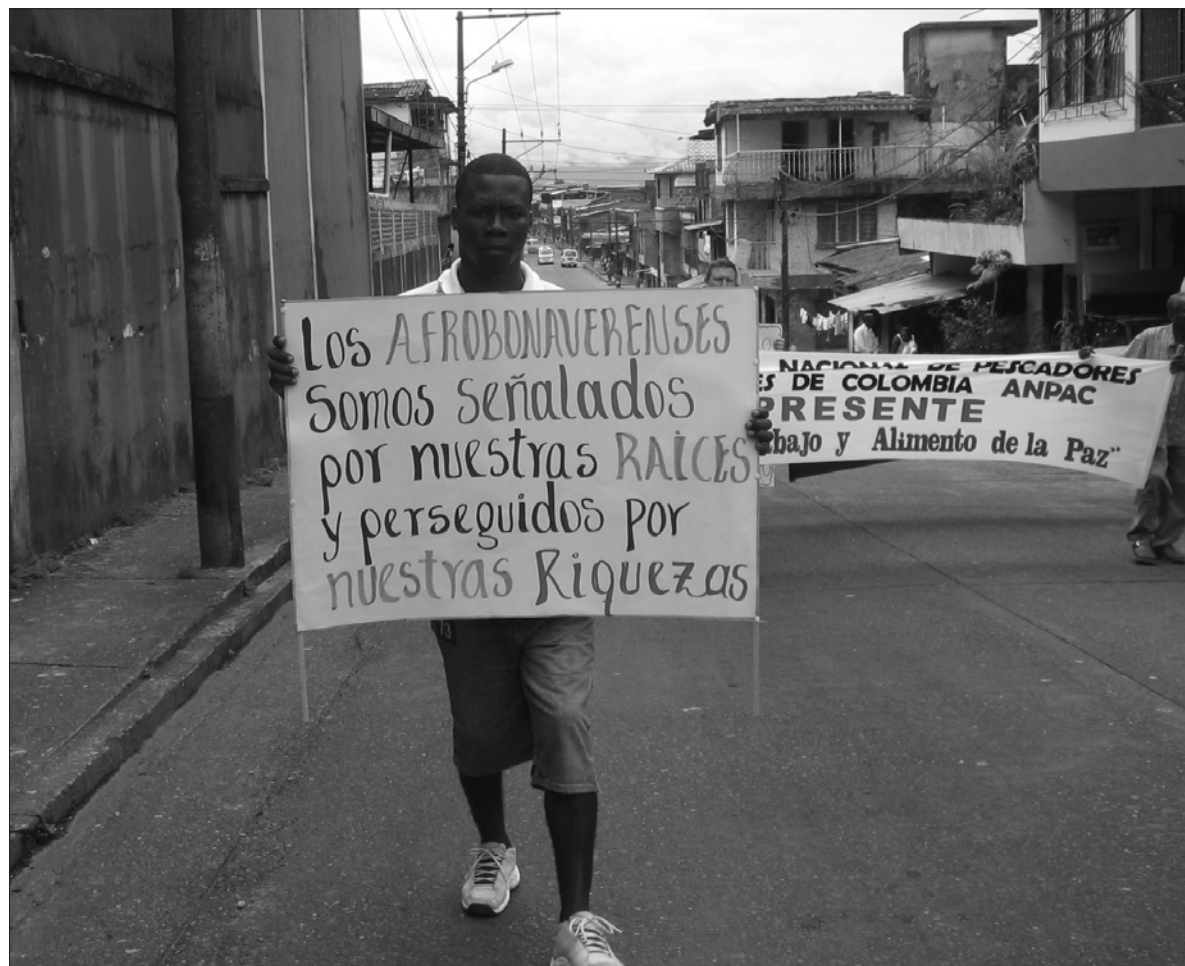 Los AFROBONAVERENSES
Somos Señalados
por nuestras RAÍCES
y perseguidos por
nuestras Riquezas
NACIONAL DE PESCADORES
ES DE COLOMBIA ANPAC
PRESENTE
bajo y Alimento de la Paz"